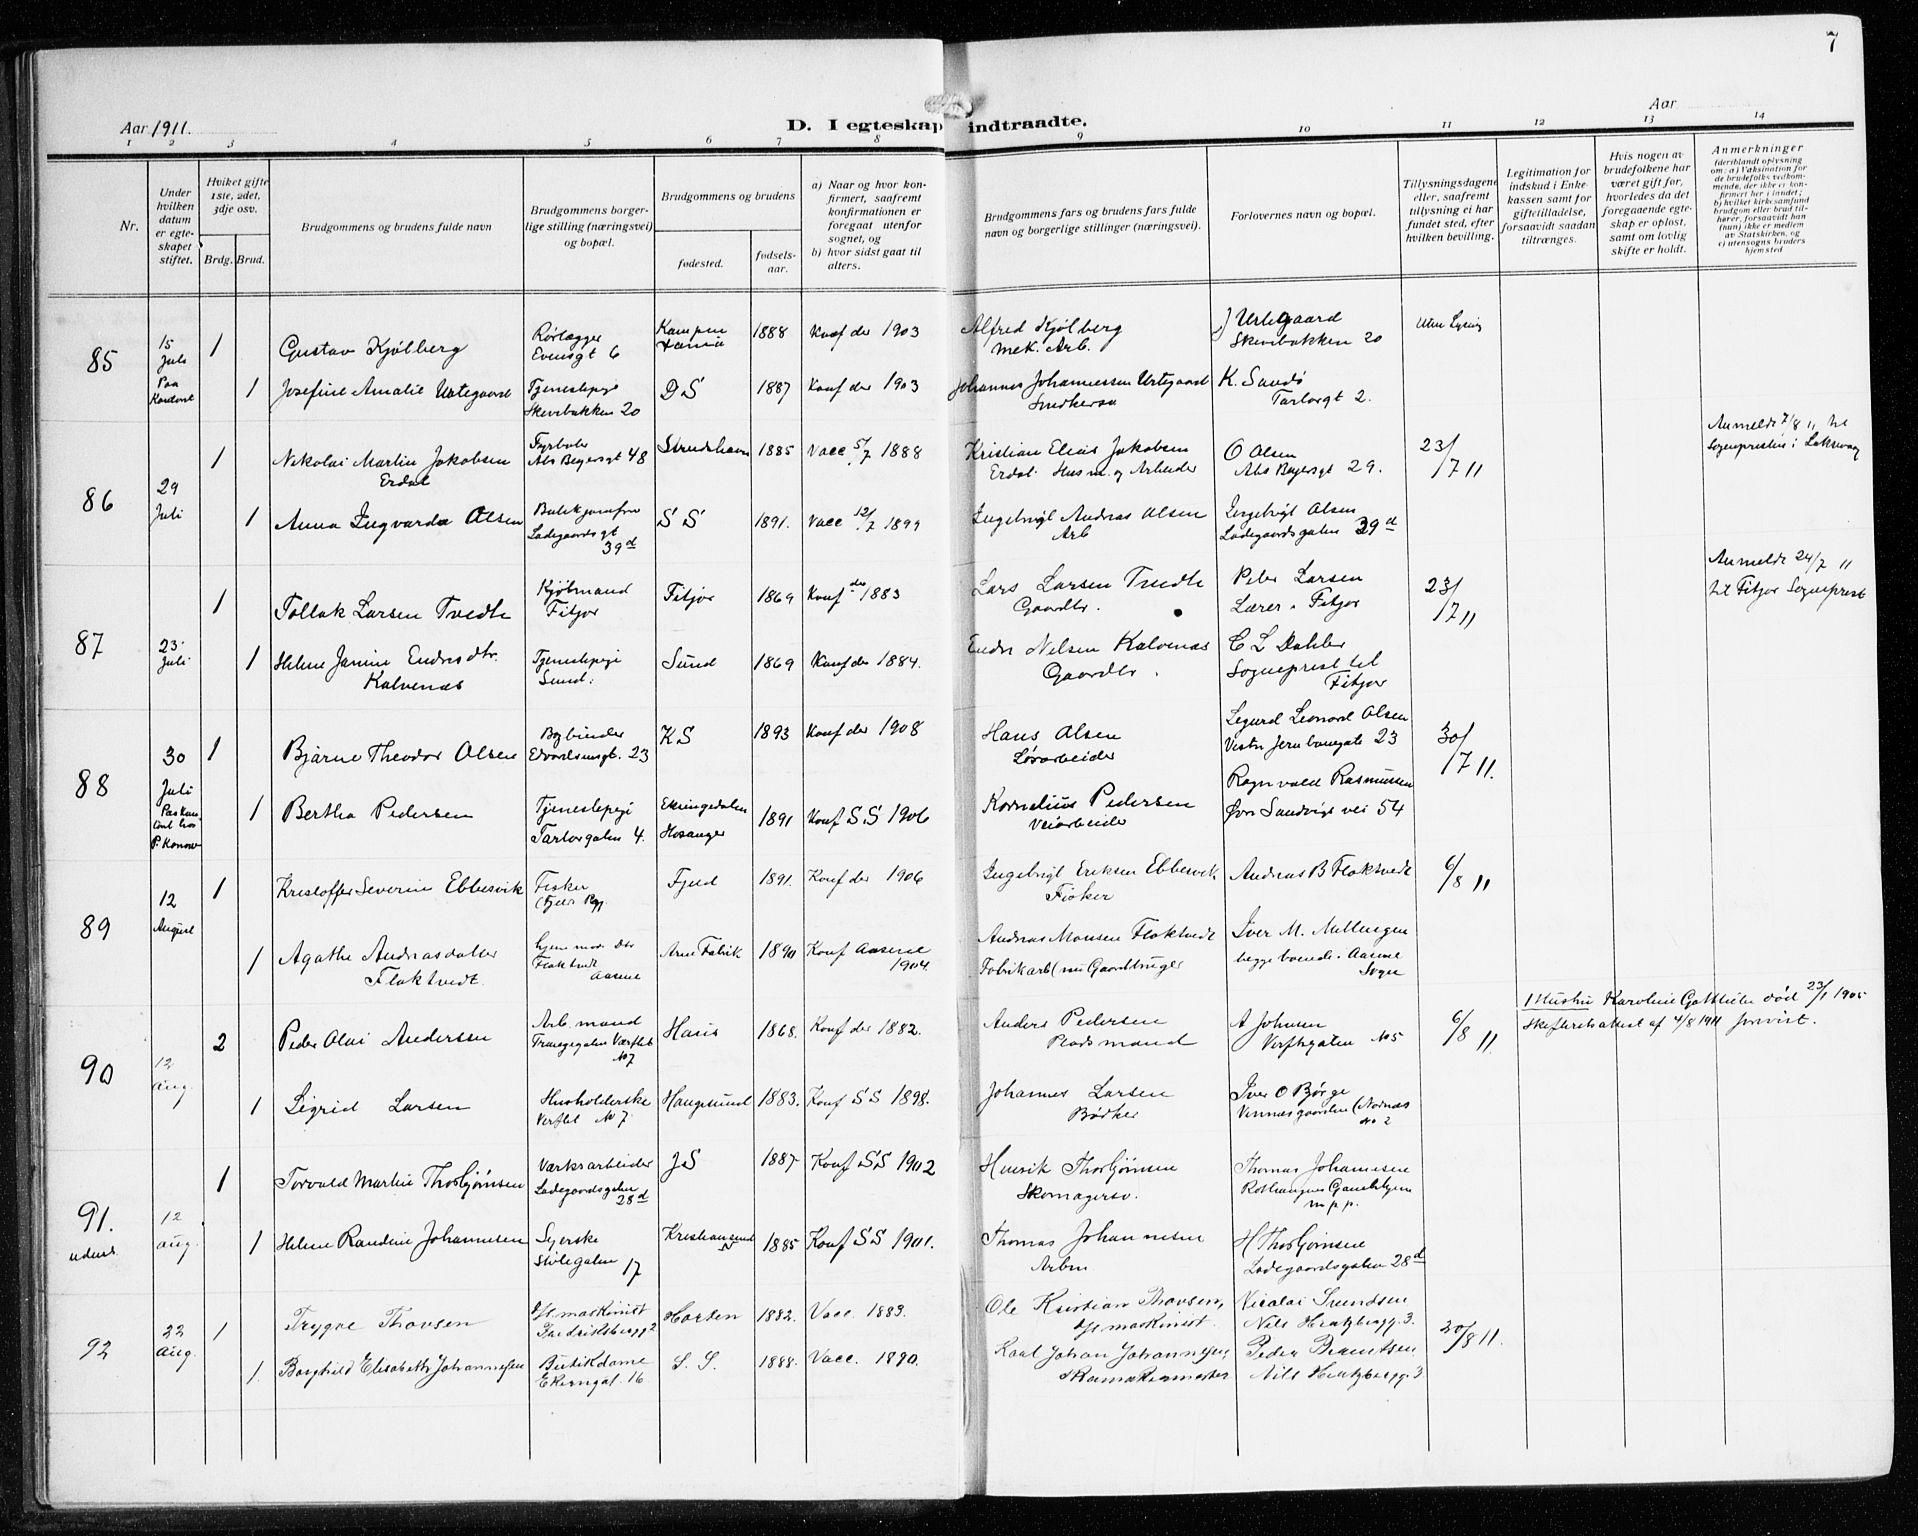 7
Aar 1911.
D. I egteskap indtraadte.
Aar
1 2 3 4 5 6 7 8 9 10 11 12 13 14
Nr.
Under hvilken datum er egteskapet stiftet.
Hviket gifte 1ste, 2det, 3dje osv.
Brdg. Brud.
Brudgommens og brudens fulde navn
Brudgommens borgerlige stilling (næringsvei) og bopæl.
Brudgommens og brudens
fødested.
fødselsaar.
a) Naar og hvor konfirmert, saafremt konfirmationen er foregaat utenfor sognet, og
b) hvor sidst gaat til alters.
Brudgommens fars og brudens fars fulde navn og borgerlige stillinger (næringsvei).
Forlovernes navn og bopæl.
Tillysningsdagene eller, saafremt tillysning ei har fundet sted, efter hvilken bevilling.
Legitimation for indskud i Enkekassen samt for giftetilladelse, forsaavidt saadan tiltrænges.
Hvis nogen av brudefolkene har været gift før, hvorledes da det foregaaende egteskap er opløst, samt om lovlig skifte er holdt.
Anmerkninger
(deriblandt oplysning om: a) Vaksination for de brudefolks vedkommende, der ikke er konfirmert her i landet; b) hvilket kirkesamfund brudgom eller brud tilhører, forsaavidt han (hun) ikke er medlem av Statskirken, og c) utensogns bruders hjemsted
85
15 Juli
1
Gustav Kjølberg
Rørlægger
Evensgt 6
Kampen
1888
Konf der 1903
Alfred Kjølberg
mek. Arb.
J Urtegaard
Skivebakken 20
Uten Lysning
Paa Kontoret
1
Josefine Amalie Urtegaard
Tjenestepige
Skivebakken 20
DS
1887
Konf der 1903
Johannes Johannessen Urtegaard
Snedkersv
K. Sandø
Tartargt 2.
86
29 Juli
1
Nikolai Martin Jakobsen
Erdal
Fyrbøter
Abs Beyersgt 48
Strudshavn
1885
Vacc 5/7 1888
Kristian Elias Jakobsen
Erdal. Husm. og Arbeider
O Olsen
Abs Beyersgt 29.
23/7 11
Anmeldt 7/8 11 til
Sognepresten i Laksevaag
1
Anna Ingvarda Olsen
Ladegaardsgt
39d
SS
1891.
Vacc 12/7 1899
Ingebrigt Andreas Olsen
Arb
Ingebrigt Olsen
Ladegaardsgaten 39d
87
23 Juli
1
Tollak Larsen Tvedte
Kjøbmand
Fitjar
Fitjar
1869
Konf der 1883
Lars Larsen Tvedte
Gaardbr.
Peter Larsen
Lærer i Fitjar
23/7 11
Anmeldt 24/7 11
til Fitjar Sogneprest
1
Helene Janine Endresdtr.
Kalvenæs
Tjenestepige
Sund.
Sund
1869
Konf der 1884.
Endre Nelsen Kalvenæs
Gaardbr.
C L Dahler
Sogneprest til
Fitjar
88
30 Juli
1
Bjarne Theodor Olsen
Bogbinder
Edvardsensgt. 23
KS
1893
Konf der 1908
Hans Olsen
Løsarbeider
Sigurd Leonard Olsen
Vestre Jernbanegate 23
30/7 11.
Paa kontoret hos P. Konow
1
Bertha Pedersen
Tjenestepige
Tartargaten 4.
Eksingedalen
Hosanger
1891
Konf SS 1906
Kornelius Pedersen
Veiarbeider
Ragnvald Rasmussen
Øvre Sandvigs vei 54
89
12 August
1
Kristoffer Severin Ebbesvik
Fisker
Fjeld
1891.
Konf der 1906
Ingebrigt Eriksen Ebbesvik
Fisker
Andreas B Flaktvedt
6/8 11
1
Agathe Andreasdatter
Flaktvedt.
hjemme. Der
Flaktvedt
Aasene
Arne Fabrik
1890
Konf Aasene
1904.
Andreas Monsen Flaktvedt
Fabrikarb (nu Gaardbruger
Iver M. Mellingen
begge boende i Aasene
Sogn
90
12 Aug.
2
Peder Olai Andersen
Arb. mand
Trangegaten Værftet
No 7
Haus
1868.
Konf der 1882.
Anders Pedersen
Pladsmand
A Johnsen
Verftsgaten No 5
6/8 11.
1 Hustru Karoline Gottlieba død 23/1 1905
Skifteretsattest af 4/8 1911 forevist.
1
Sigrid Larsen
Husholderske
Verftet No 7
Haugesund
1883.
Konf SS 1898.
Johannes Larsen
Bødker
Iver O Børge
Vennesgaarden (Nordnes
No 2
91.
udens.
12 Aug.
1
Torvald Martin Thorbjørnsen
Værksarbeider
Ladegaardsgaten
28d
JS
1887
Konf SS 1902
Henrik Thorbjørnsen
Skomagersv.
Thomas Johannesen
m.p.p.
1
Helene Randine Johannesen
Syerske
Stølegaten 17
Kristiansund
N
1885
Konf SS 1901.
Thomas Johannesen
Arbm
H Thorbjørnsen
Ladegaardsgaten 28d
92
22 Aug.
1
Trygve Thovsen
D/s maskinist
Fredriksbergg 2
Horten
1882.
Vacc. 1883.
Ole Kristian Thovsen,
D/s maskinist.
Nicolai Svendsen
Nils Hertzbergg. 3.
20/8 11.
1.
Borghild Elisabeth Johannesen
Butikdame
Ekrengat. 16
S. S.
1888.
Vacc. 1890.
Karl Johan Johannesen,
Skomakermester
Peder Berntsen
Nils Hertzbergg. 3